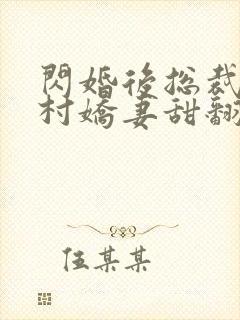 閃婚後總裁
村嬌妻甜翻
伍某某